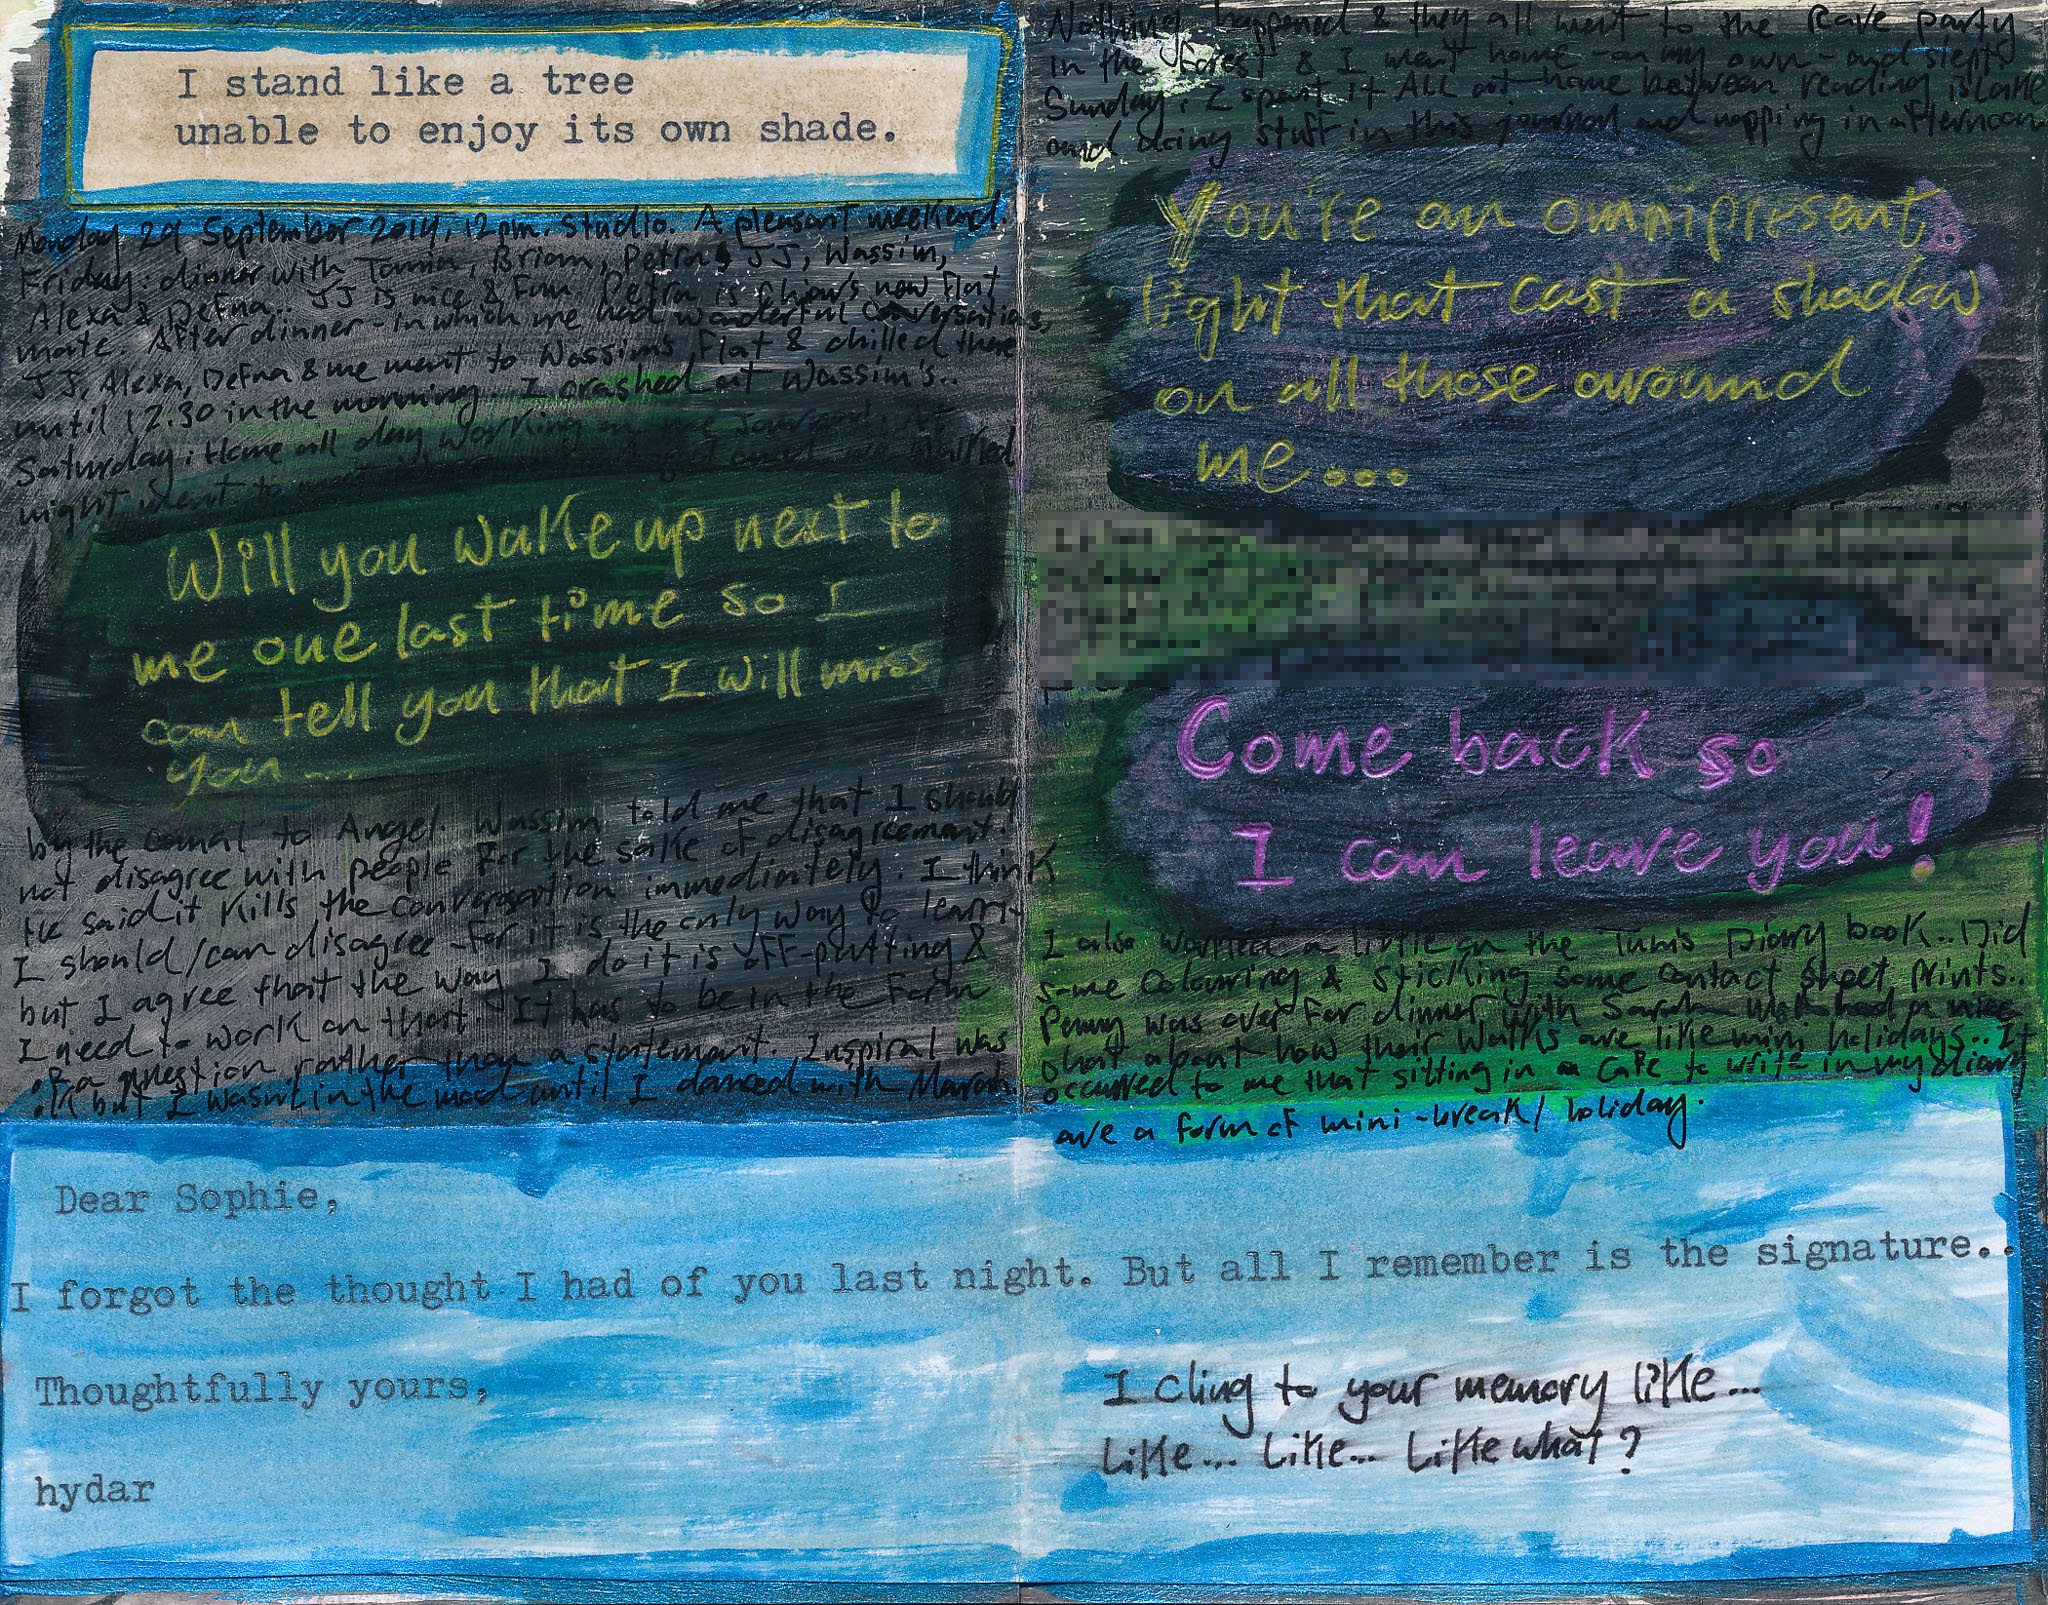 I stand like a tree
unable to enjoy its own shade.
Monday 29 September 2014, 12pm. studio. A pleasant weekend.
Friday: dinner with Tania, Brian, Petra, JJ, Wassim,
Alexa & Defna.. JJ is nice & fun. Petra is new flat
mate. After dinner - in which we had wonderful conversations,
JJ, Alexa, Defna & me went to Wassim's flat & chilled there
until 12.30 in the morning. I crashed at Wassim's..
Saturday: Home all day working on the journal. At
night went to and we walked
Will you wake up next to
me one last time so I
can tell you that I will miss
you...
by the canal to Angel. Wassim told me that I should
not disagree with people for the sake of disagreement.
He said it kills the conversation immediately. I think
I should/can disagree - for it is the only way to learn -
but I agree that the way I do it is off-putting &
I need to work on that. It has to be in the form
of a question rather than a statement. Inspiral was
ok but I wasn't in the mood until I danced with Marah
Nothing happened & they all went to the Rave party
in the forest & I went home on my own - and slept
Sunday: I spent it ALL at home between reading
and doing stuff in this journal and napping in afternoon
You're an omnipresent
light that cast a shadow
on all those around
me...
Come back so
I can leave you!
I also worked a little on the Tunis Diary book.. Did
some colouring & sticking some contact sheet prints..
Penny was over for dinner with Sarah
chat about how their walks are like mini holidays.. It
occurred to me that sitting in a cafe to write in my diary
are a form of mini-break/holiday.
Dear Sophie,
I forgot the thought I had of you last night. But all I remember is the signature..
Thoughtfully yours,
hydar
I cling to your memory like...
Like... Like... Like what?